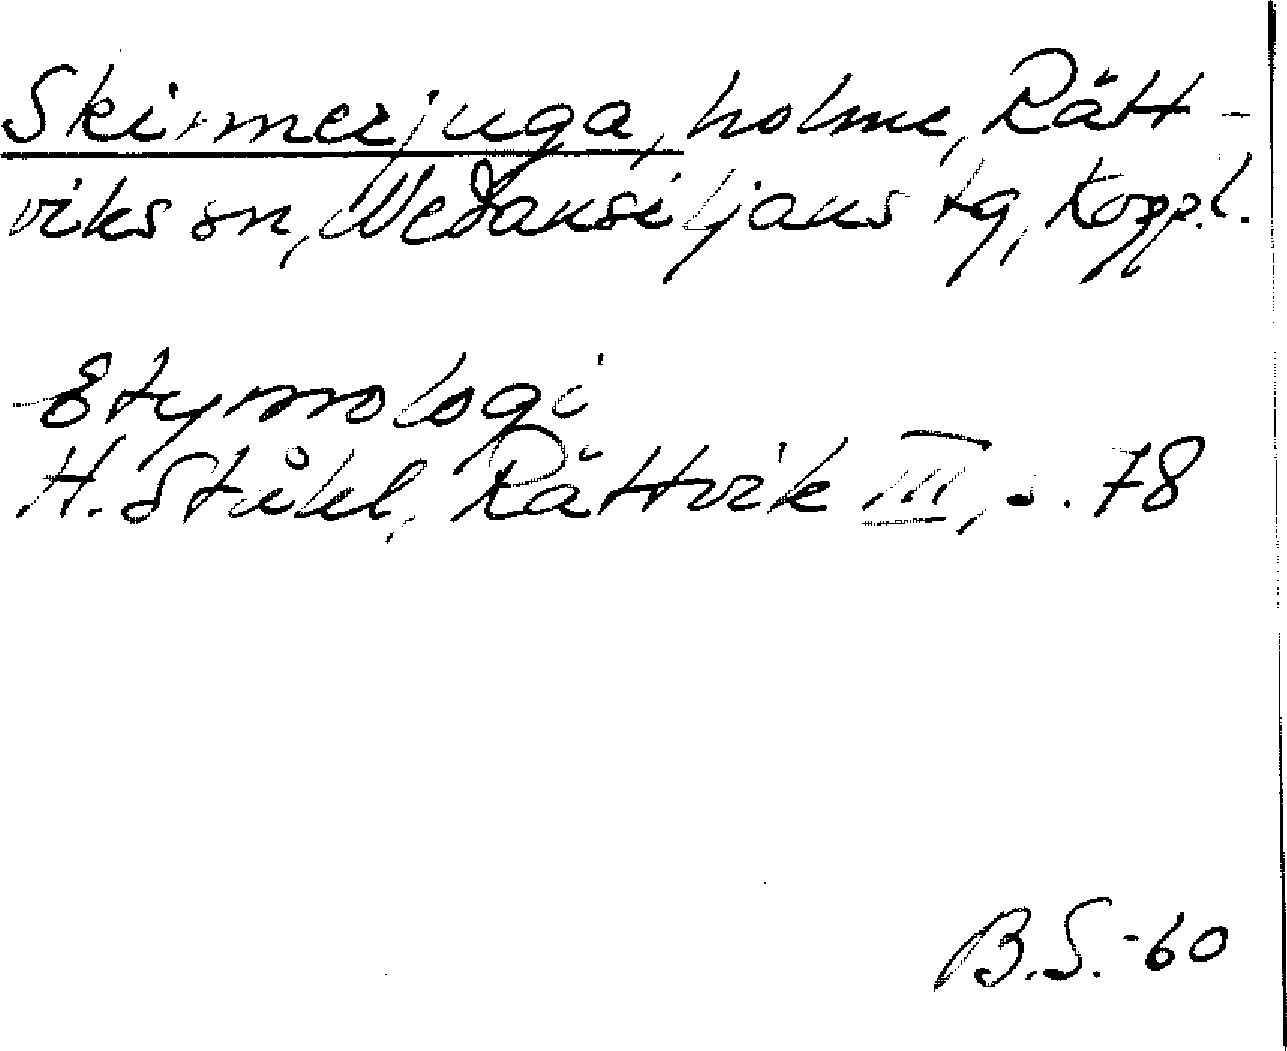 Skinmerjuga, holme, Rätt-
viks sn, Nedansiljans tg, Koppl.
Etymologi
H. Ståhl, Rättvik III, s. 78
B.S.-60